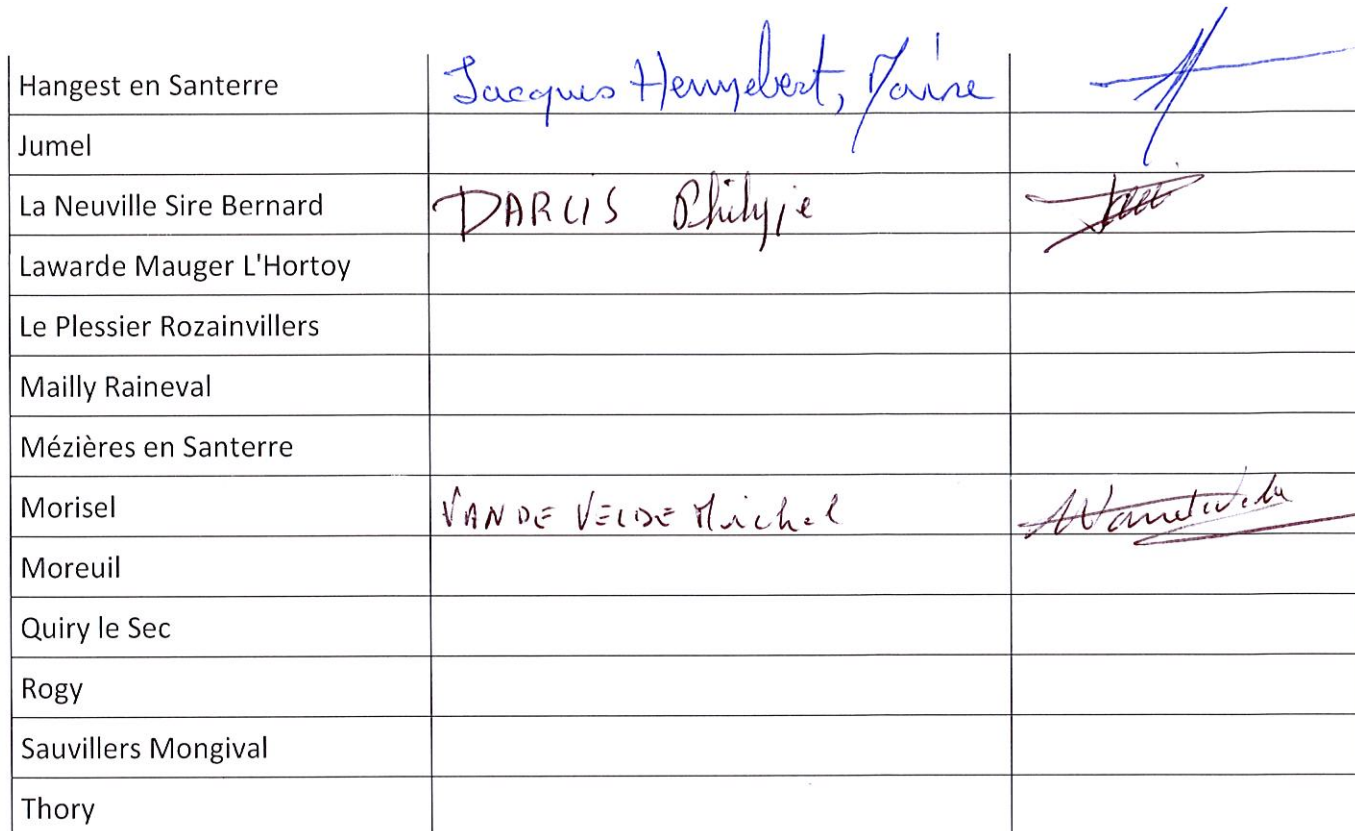 Hangest en Santerre Jacques Hennebert, Maire
Jumel
La Neuville Sire Bernard DARCIS Philippe
Lawarde Mauger L'Hortoy
Le Plessier Rozainvillers
Mailly Raineval
Mézières en Santerre
Morisel VANDE VELDE Michel
Moreuil
Quiry le Sec
Rogy
Sauvillers Mongival
Thory